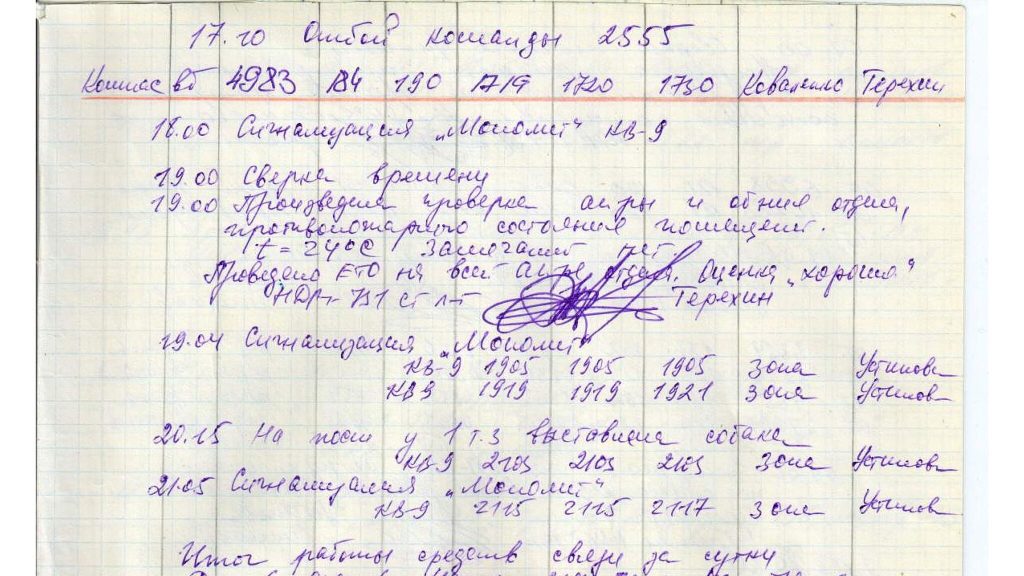 17.10 Отбой команды 2555
Компас вб 4983 184 190 1719 1720 1730 Коваленко Терехин
18.00 Сигнализация „Монолит“ КВ-9
19.00 Сверка времени
19.00 Произведена проверка ап-ры и общие отдела,
противопожарного состояния помещений.
t = 24°С Замечаний нет
Проведено ЕТО на всей ап-ре отдела. Оценка „хорошо“
НДР-731 ст л-т Терехин
19.04 Сигнализация „Монолит“
КВ-9 1905 1905 1905 Зона Устинова
КВ9 1919 1919 1921 Зона Устинова
20.15 На пост у 1 т.з выставлена собака
КВ-9 2103 2103 2103 Зона Устинова
21.05 Сигнализация „Монолит“
КВ-9 2115 2115 2117 Зона Устинова
Итог работы средств связи за сутки